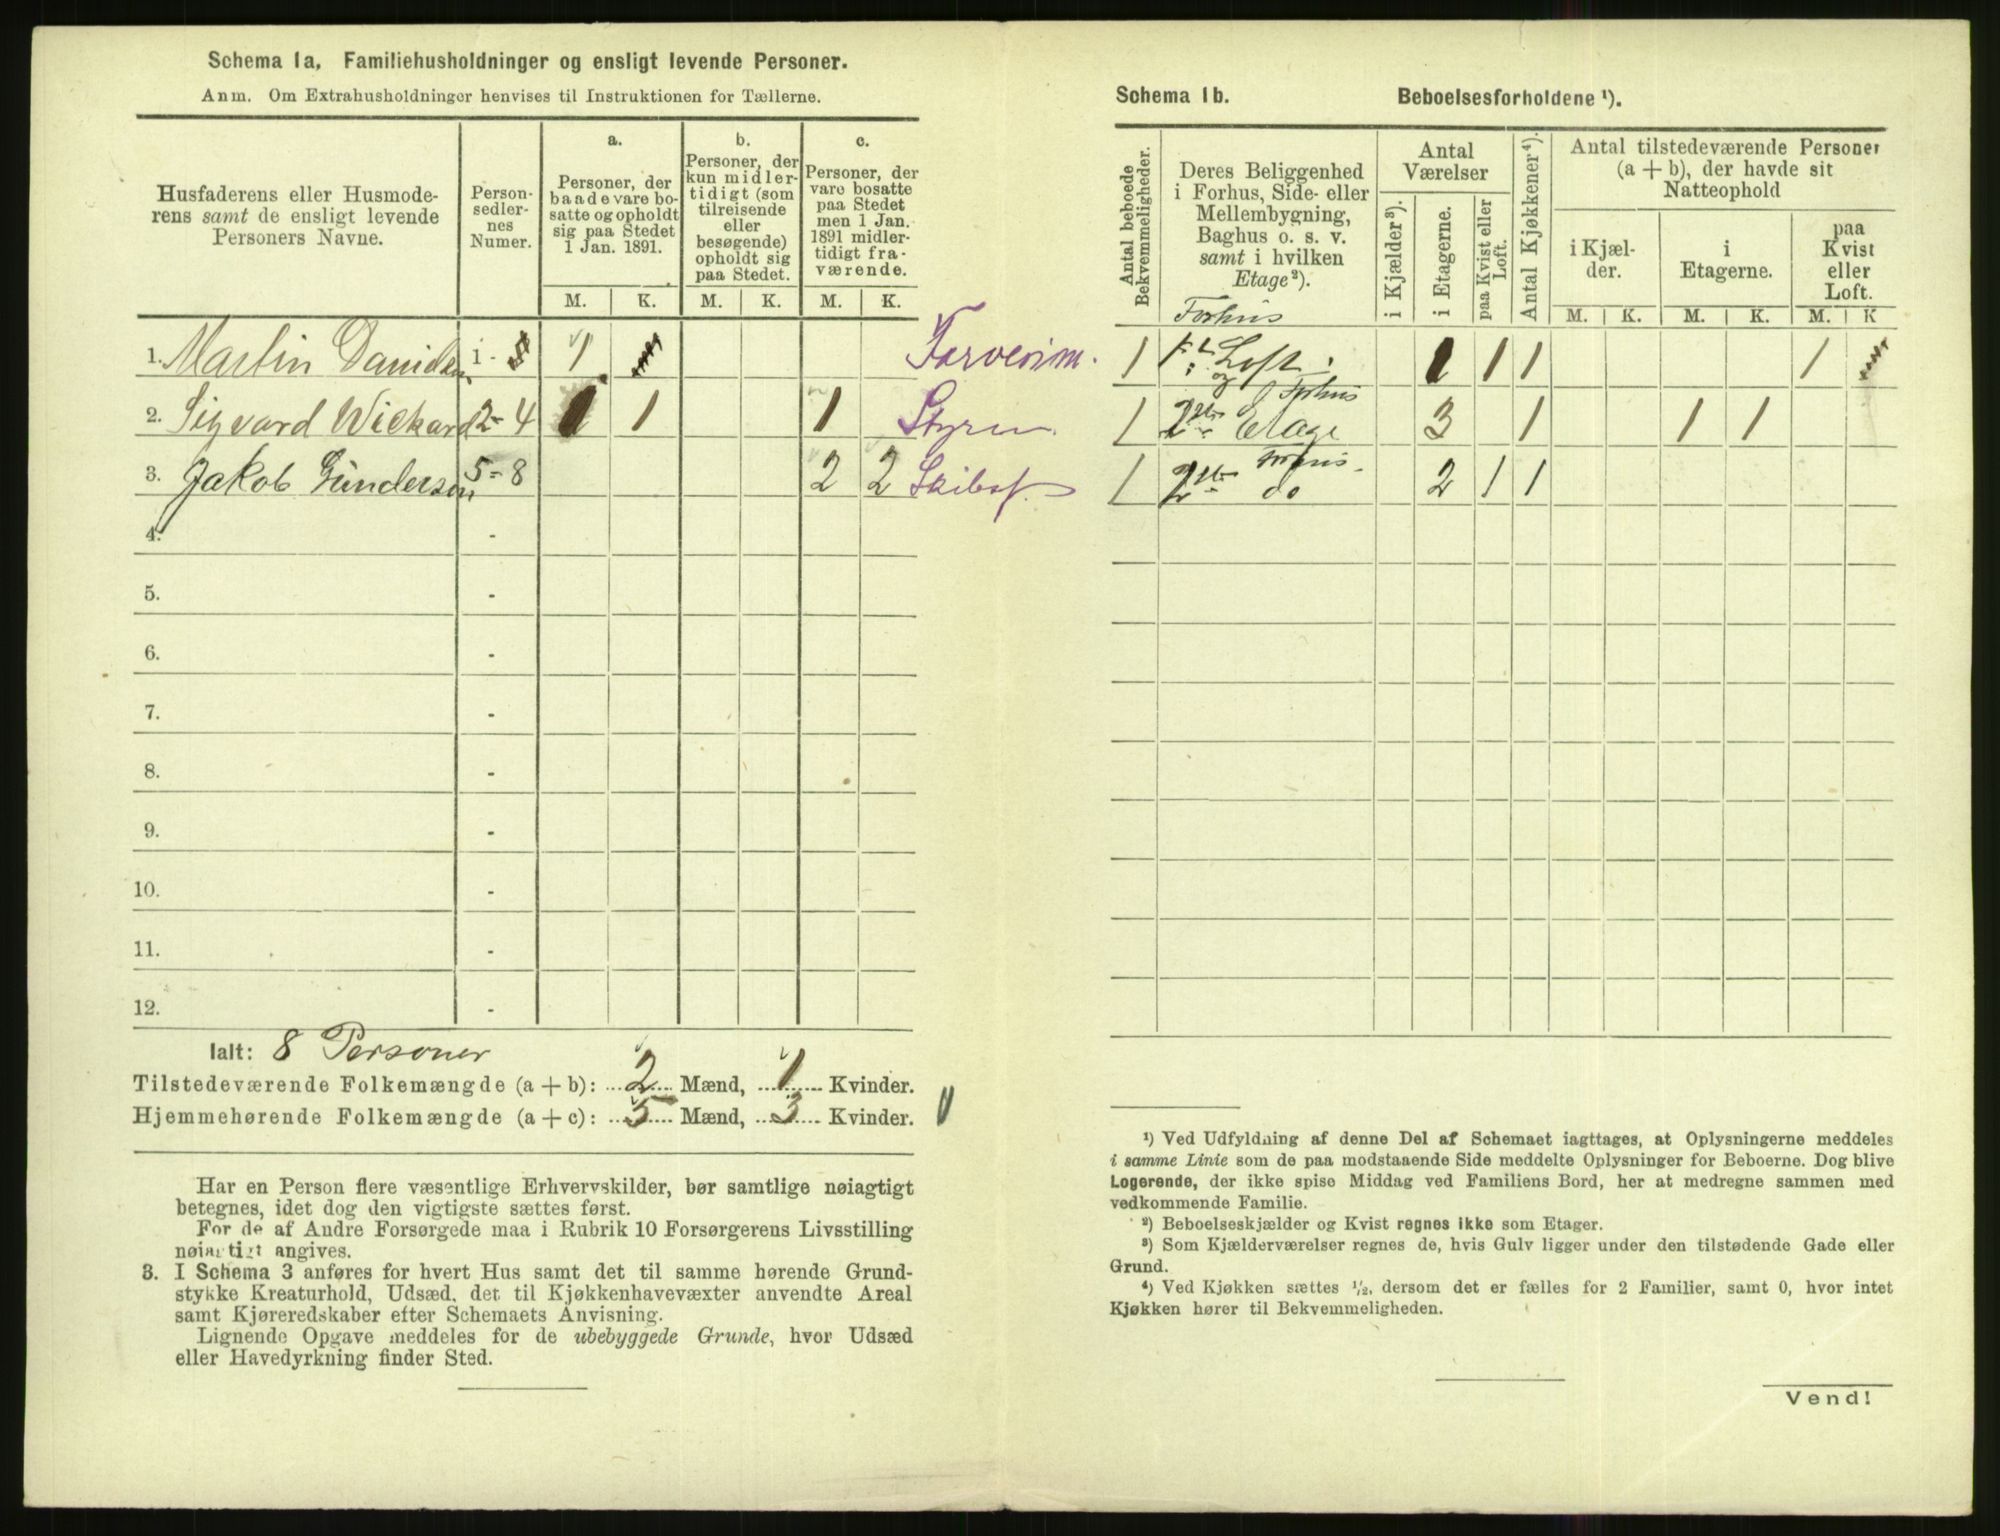 Schema 1a, Familiehusholdninger og ensligt levende Personer.
Anm. Om Extrahusholdninger henvises til Instruktionen for Tællerne.
Husfaderens eller Husmode-
rens samt de ensligt levende
Personers Navne.
Person-
sedler-
nes
Numer.
a.
Personer, der
baade vare bo-
satte og opholdt
sig paa Stedet
1 Jan. 1891.
b.
Personer, der
kun midler-
tidigt (som
tilreisende
eller
besøgende)
opholdt sig
paa Stedet.
c.
Personer, der
vare bosatte
paa Stedet
men 1 Jan.
1891 midler-
tidigt fra-
værende.
M. K. M. K. M. K.
1. Martin Danielsen 1 - 1 Farverim.
2. Sigvard Wickard 2-4 1 1 1 Styrm.
3. Jakob Gundersen 5-8 2 2 Skibsf.
4. -
5. -
6. -
7. -
8. -
9. -
10. -
11. -
12. -
Ialt: 8 Personer
Tilstedeværende Folkemængde (a + b): 2 Mænd, 1 Kvinder.
Hjemmehørende Folkemængde (a + c): 5 Mænd, 3 Kvinder.
Har en Person flere væsentlige Erhvervskilder, bør samtlige nøiagtigt
betegnes, idet dog den vigtigste sættes først.
For de af Andre Forsørgede maa i Rubrik 10 Forsørgerens Livsstilling
nøiagtigt angives.
3. I Schema 3 anføres for hvert Hus samt det til samme hørende Grund-
stykke Kreaturhold, Udsæd, det til Kjøkkenhavevæxter anvendte Areal
samt Kjøreredskaber efter Schemaets Anvisning.
Lignende Opgave meddeles for de ubebyggede Grunde, hvor Udsæd
eller Havedyrkning finder Sted.
Schema 1b. Beboelsesforholdene ¹).
Antal beboede
Bekvemmeligheder.
Deres Beliggenhed
i Forhus, Side- eller
Mellembygning,
Baghus o. s. v.
samt i hvilken
Etage²).
Antal
Værelser
i Kjælder³).
i Etagerne.
paa Kvist eller
Loft.
Antal Kjøkkener⁴).
Antal tilstedeværende Personer
(a + b), der havde sit
Natteophold
i Kjæl-
der.
i
Etagerne.
paa
Kvist
eller
Loft.
M. K. M. K. M. K
Forhus
1 1st og Loft 1 1 1 1
Forhus
1 2den Etage 3 1 1 1
Forhus
1 2den do 2 1 1
¹) Ved Udfyldning af denne Del af Schemaet iagttages, at Oplysningerne meddeles
i samme Linie som de paa modstaaende Side meddelte Oplysninger for Beboerne. Dog blive
Logerende, der ikke spise Middag ved Familiens Bord, her at medregne sammen med
vedkommende Familie.
²) Beboelseskjælder og Kvist regnes ikke som Etager.
³) Som Kjælderværelser regnes de, hvis Gulv ligger under den tilstødende Gade eller
Grund.
⁴) Ved Kjøkken sættes ½, dersom det er fælles for 2 Familier, samt 0, hvor intet
Kjøkken hører til Bekvemmeligheden.
Vend!